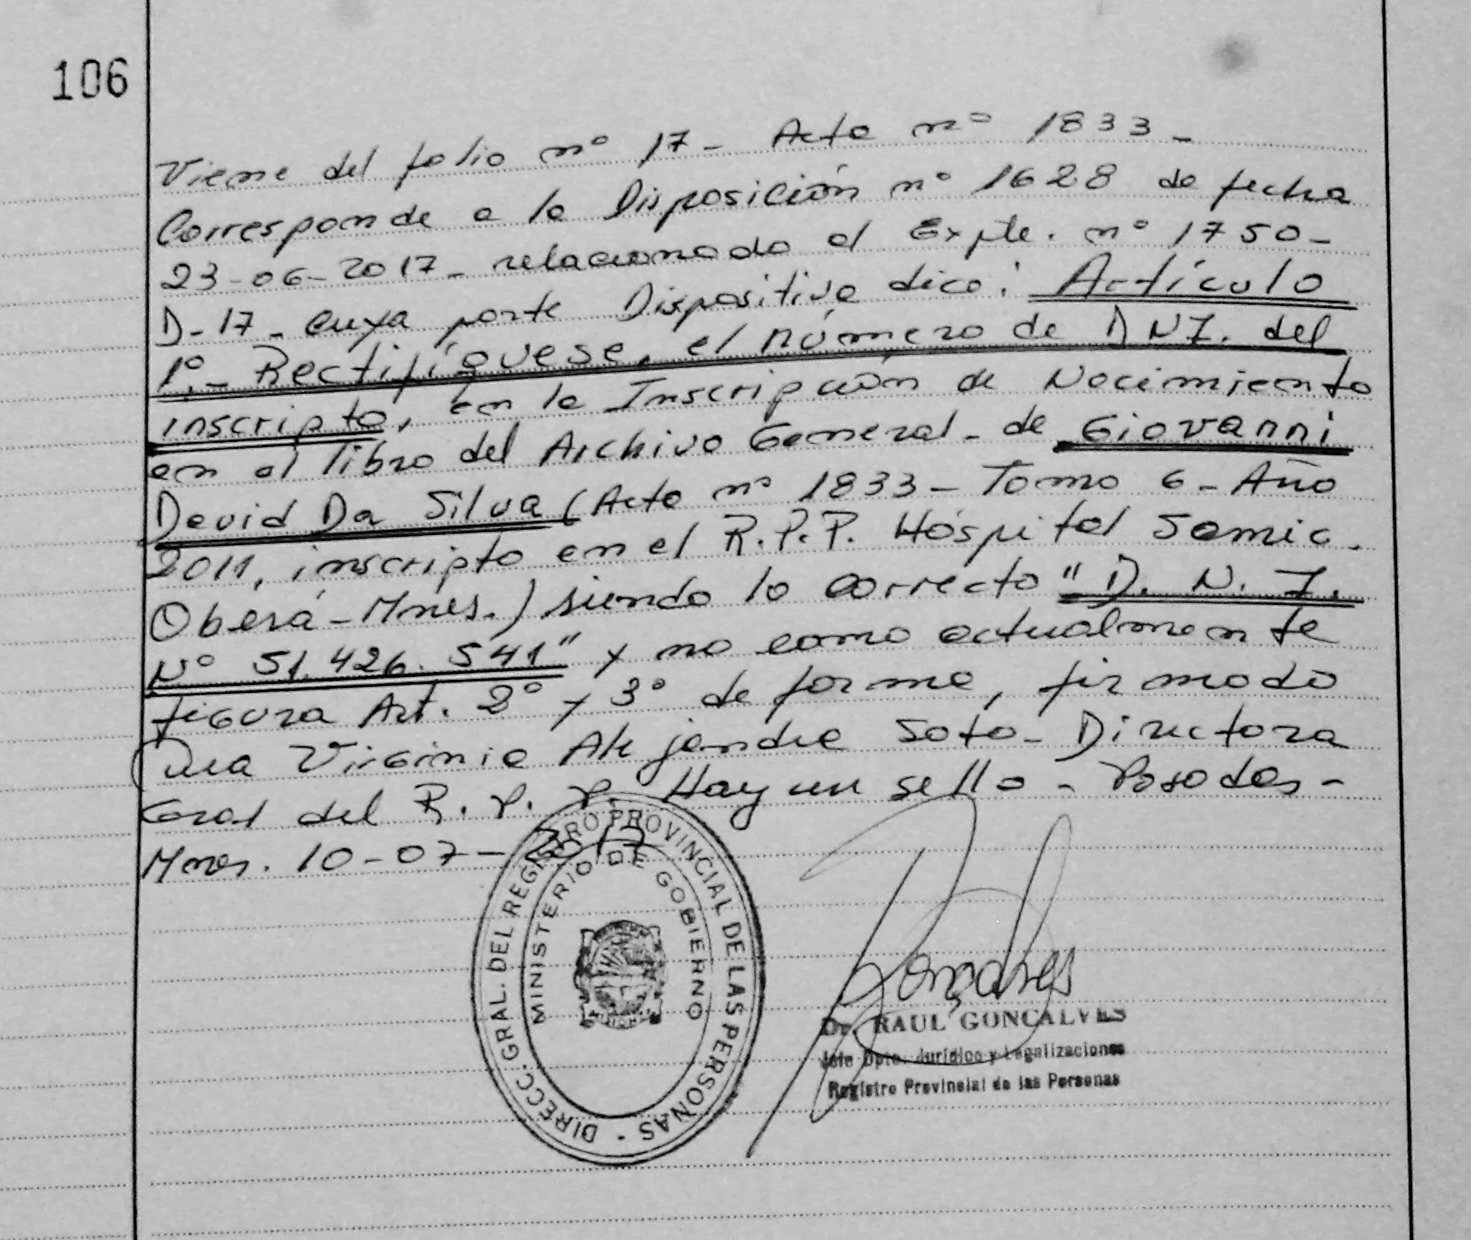 106
Viene del folio nº 17 - Acta nº 1833 -
Corresponde a la Disposición nº 1628 de fecha
23-06-2017 - relacionado al Expte. nº 1750-
D-17 - cuya parte Dispositiva dice: Artículo
1º.- Rectifíquese, el número de DNI. del
inscripto, en la Inscripción de Nacimiento
en el libro del Archivo General - de Giovanni
David Da Silva (Acta nº 1833 - Tomo 6 - Año
2011, inscripto en el R.P.P. Hospital Samic.
Oberá - Mnes.) siendo lo correcto "D. N. I.
Nº 51.426.541" y no como actualmente
figura Art. 2º y 3º de forma, firmado
Dra Virginia Alejandra Soto - Directora
Gral del R. P. P. Hay un sello - Posadas -
Mnes. 10-07-2017
DIRECC. GRAL. DEL REGISTRO PROVINCIAL DE LAS PERSONAS -
MINISTERIO DE GOBIERNO
Gonçalves
Dr. RAUL GONCALVES
Jefe Dpto. Jurídico y Legalizaciones
Registro Provincial de las Personas